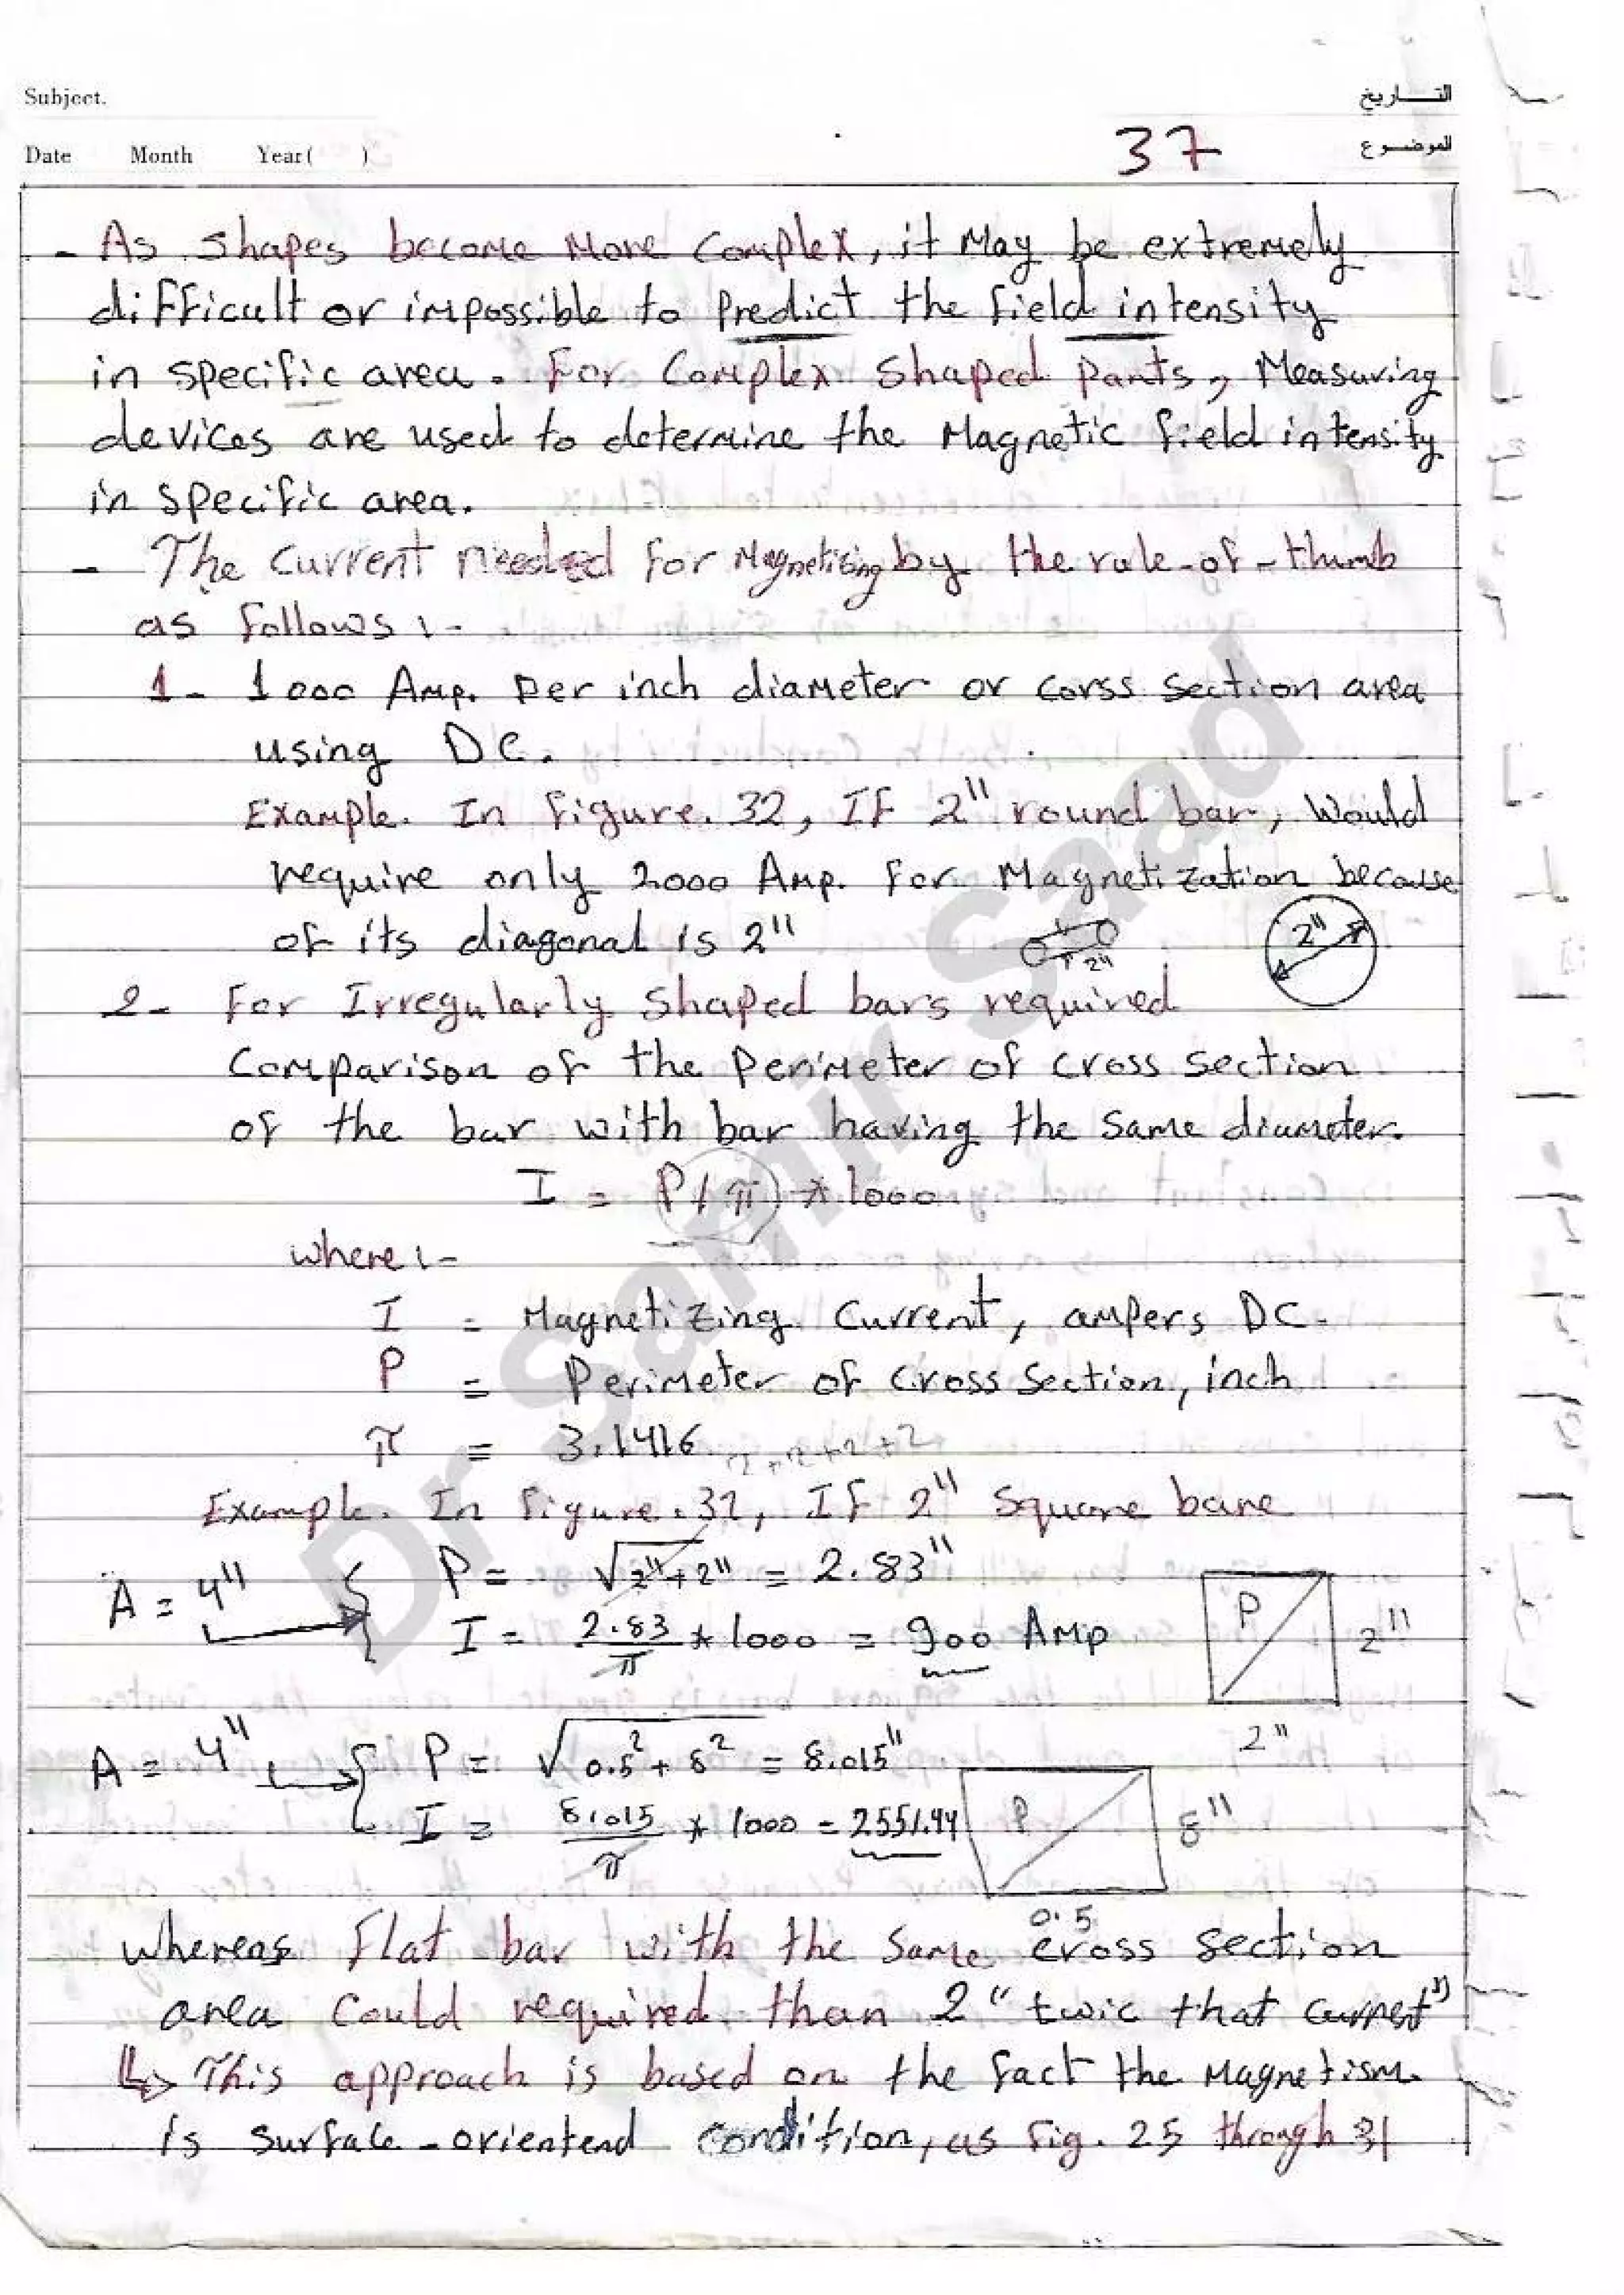 Subject.
التـــاريخ
Date Month Year ( )
37
الموضـــوع
- As shapes become More Complex, it May be extremely
difficult or impossible to Predict the field intensity
in specific area. For Complex Shaped Parts, Measuring
devices are used to determine the Magnetic field intensity
in specific area.
- The Current needed for Magnetizing by the rule-of-thumb
as follows :-
1- 1000 Amp. Per inch diameter or corss section area
using DC.
Example. In figure. 32, If 2" round bar, Would
require only 2000 Amp. for Magnetization because
of its diagonal is 2"
2"
2"
2- For Irregularly Shaped bars required
Comparison of the Perimeter of cross section
of the bar with bar having the same diameter.
I = P / π * 1000
where :-
I = Magnetizing Current, ampers DC.
P = Perimeter of cross section, inch
π = 3.1416 2+2+2+2
Example. In figure. 32, If 2" Square bare
A = 4" P = √2"+2" = 2.83"
I = 2.83/π * 1000 = 900 Amp
P 2"
2"
A = 4" P = √0.5²+8² = 8.015"
I = 8.015/π * 1000 = 2551.44
P 8"
0.5
whereas flat bar with the same cross section
area Could required than 2 "twic that Current"
This approach is based on the fact the Magnetism
is surface-orientend condition, as fig. 25 through 31
Dr Samir Saad